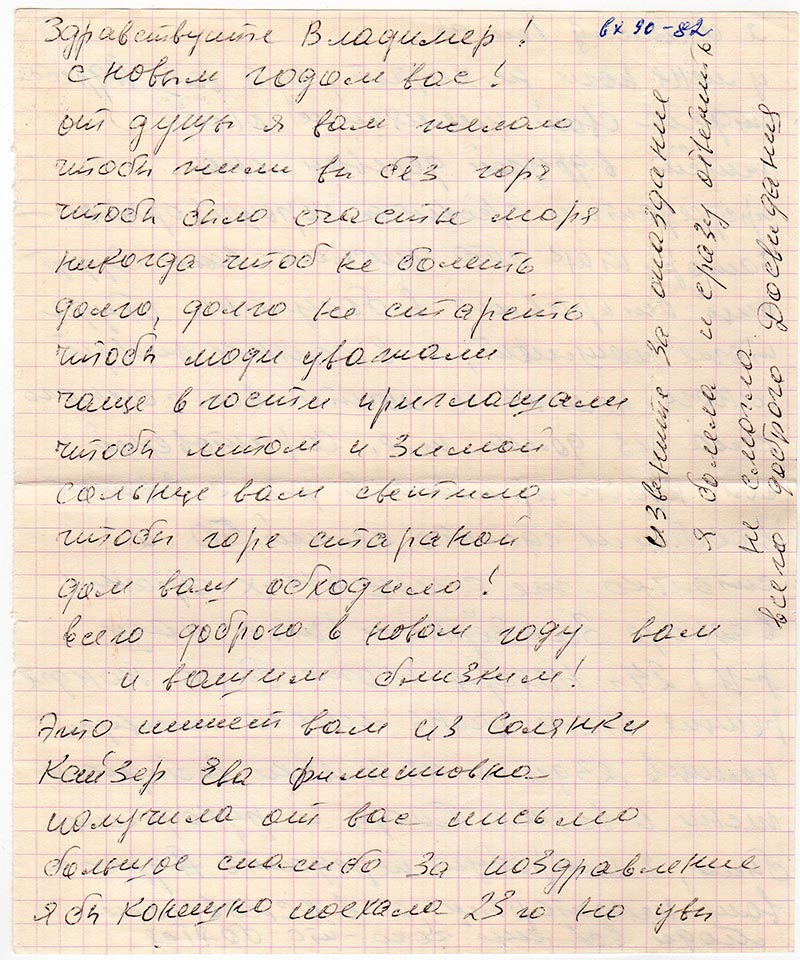 вх 90-82
Здравствуйте Владимер!
с новым годом вас!
от душы я вам желаю
чтоби жили ви без горя
чтоби било счастье моря
никогда чтоб не болеть
долго, долго не стареть
чтоби люди уважали
чаще в гости приглашали
чтоби летом и зимой
сольнце вам светило
чтоби горе стараной
дом ваш обходило!
всего доброго в новом году вам
и вашим близким!
Это пишет вам из Солянки
Кайзер Ева филиповна
получила от вас письмо
большое спасибо за поздравление
я би конешно поехала 23го но уви
извените за опаздание
я болела и сразу ответить
не смогла
всего доброго Досвидания